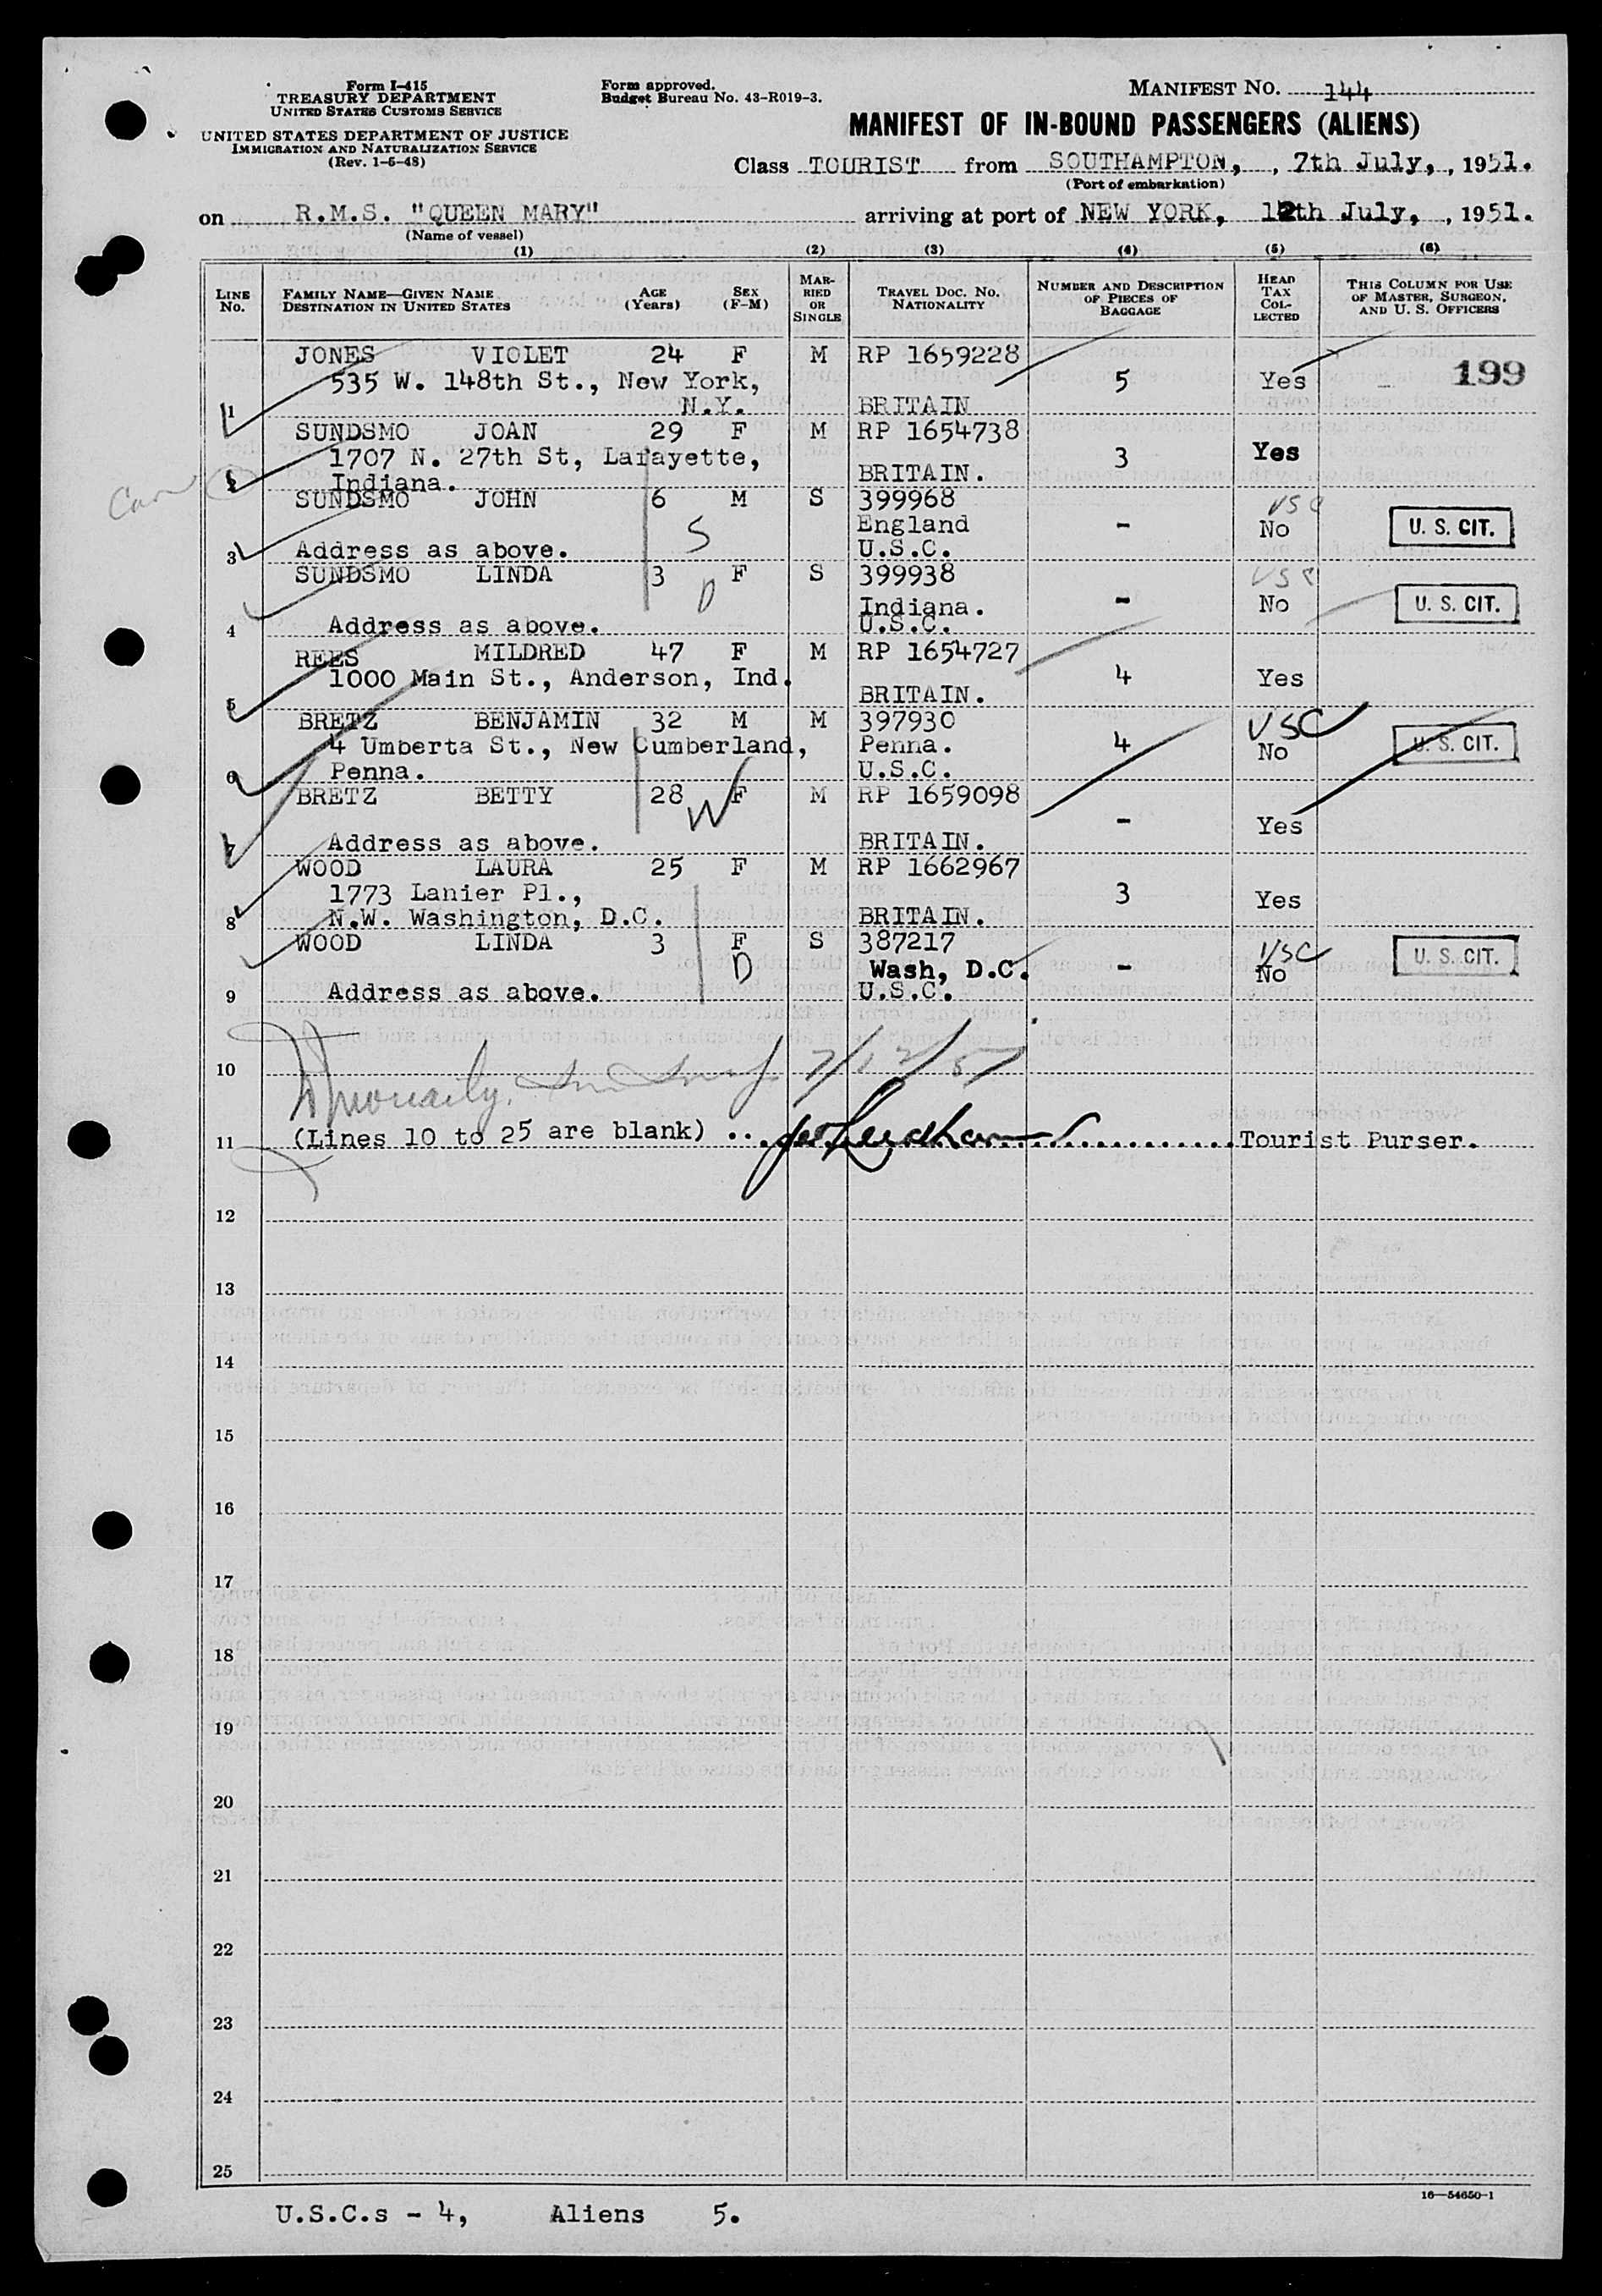 Form I-415
TREASURY DEPARTMENT
UNITED STATES CUSTOMS SERVICE
UNITED STATES DEPARTMENT OF JUSTICE
IMMIGRATION AND NATURALIZATION SERVICE
(Rev. 1-6-48)
Form approved.
Budget Bureau No. 43-R019-3.
MANIFEST NO. 144
MANIFEST OF IN-BOUND PASSENGERS (ALIENS)
Class TOURIST from SOUTHAMPTON, , 7th July, , 1951.
(Port of embarkation)
on R.M.S. "QUEEN MARY" arriving at port of NEW YORK, 12th July, , 1951.
(Name of vessel)
(1) (2) (3) (4) (5) (6)
LINE No. FAMILY NAME—GIVEN NAME DESTINATION IN UNITED STATES AGE (Years) SEX (F-M) MARRIED OR SINGLE TRAVEL DOC. NO. NATIONALITY NUMBER AND DESCRIPTION OF PIECES OF BAGGAGE HEAD TAX COLLECTED THIS COLUMN FOR USE OF MASTER, SURGEON, AND U. S. OFFICERS
JONES VIOLET 24 F M RP 1659228
535 W. 148th St., New York, 5 Yes 199
1 N.Y. BRITAIN
SUNDSMO JOAN 29 F M RP 1654738
1707 N. 27th St, Lafayette, 3 Yes
2 Indiana. BRITAIN.
SUNDSMO JOHN 6 M S 399968 USC
S England - No U. S. CIT.
3 Address as above. U.S.C.
SUNDSMO LINDA 3 F S 399938 USC
D Indiana. - No U. S. CIT.
4 Address as above. U.S.C.
REES MILDRED 47 F M RP 1654727
1000 Main St., Anderson, Ind. 4 Yes
5 BRITAIN.
BRETZ BENJAMIN 32 M M 397930 USC
4 Umberta St., New Cumberland, Penna. 4 No U. S. CIT.
6 Penna. U.S.C.
BRETZ BETTY 28 F M RP 1659098
W - Yes
7 Address as above. BRITAIN.
WOOD LAURA 25 F M RP 1662967
1773 Lanier Pl., 3 Yes
8 N.W. Washington, D.C. BRITAIN.
WOOD LINDA 3 F S 387217 USC
D Wash, D.C. - No U. S. CIT.
9 Address as above. U.S.C.
10 7/12/51
11 (Lines 10 to 25 are blank) Tourist Purser.
12
13
14
15
16
17
18
19
20
21
22
23
24
25
16—54650-1
U.S.C.s - 4, Aliens 5.